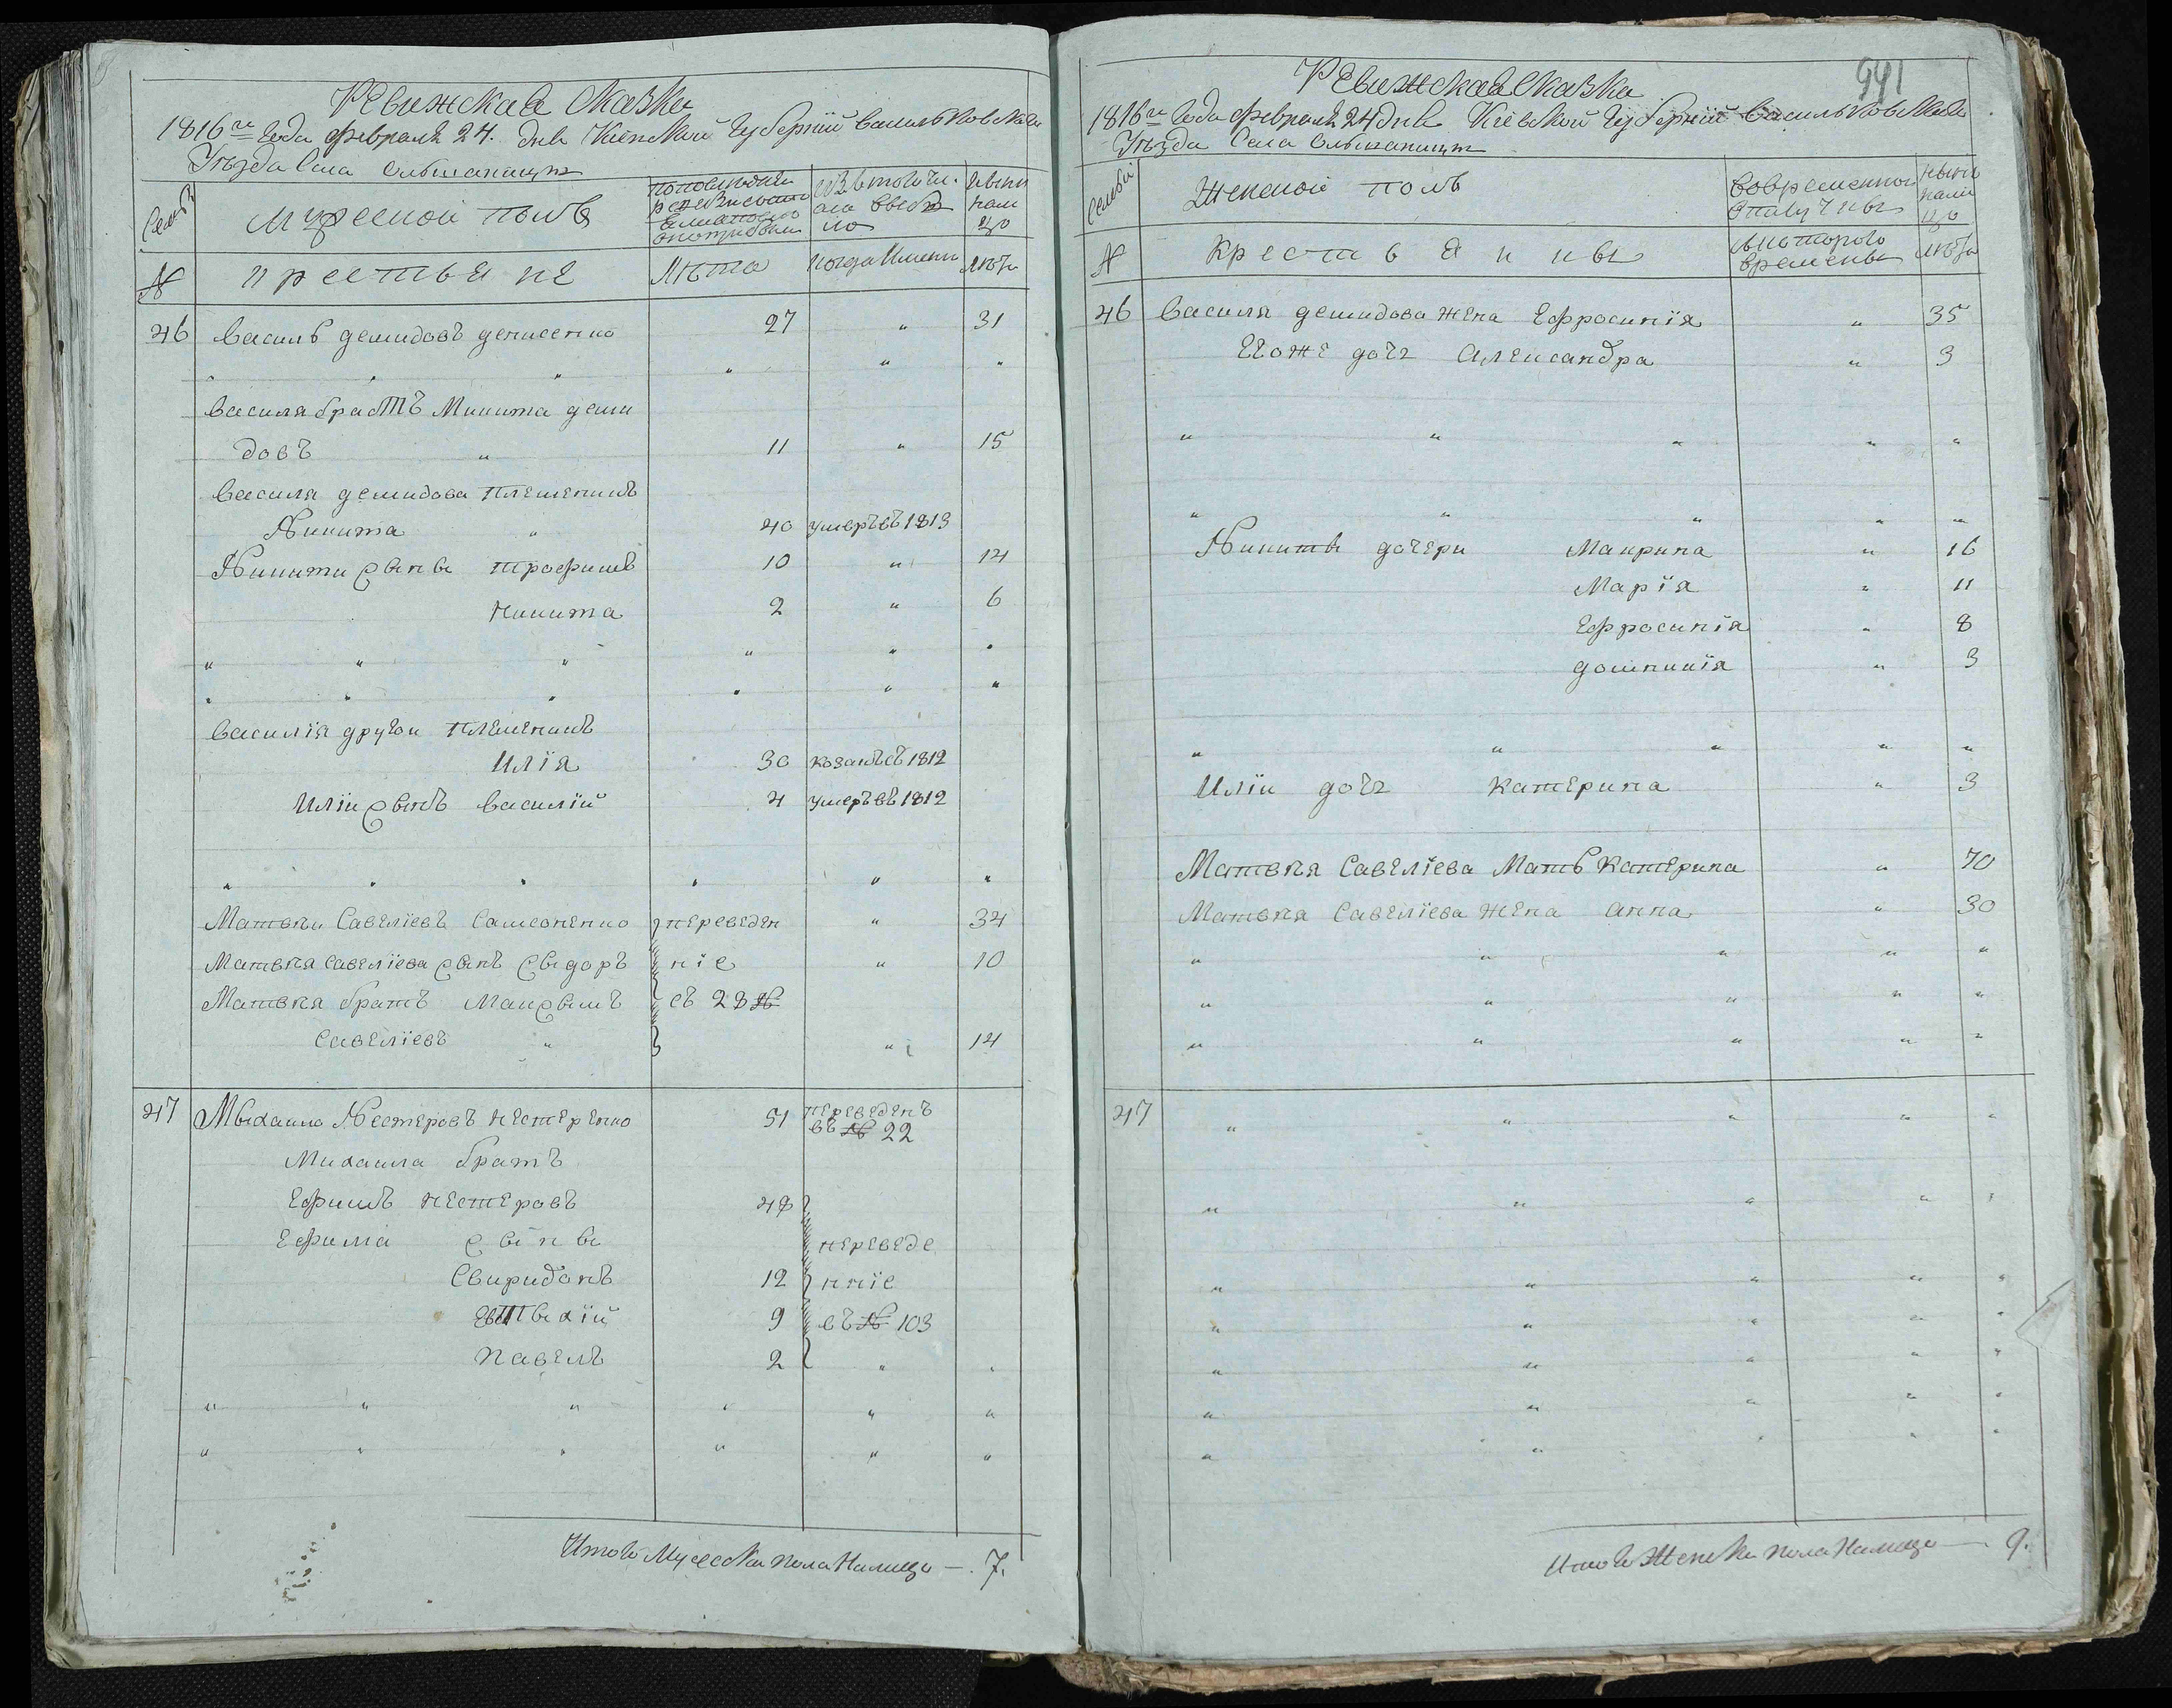 Ревижская Сказка
1816го года февраля 24. дня Кіевской Губерніи Васильковскаго
Уѣзда Села Ольшаницы
Семьи
Мужеской полъ
по последней ревизіи состояло и
изъ того числа выбыло
Нынѣ на лицо
№
крестьяне
Лѣта
когда именно
лѣта
46
Василь демидовъ денисенко
27
"
31
" " " " " "
Василя братъ Микита деми
довъ " 11 " 15
Василя демидова племеникъ
Никита " 40 умеръ въ 1813
Никити сыны трофимъ 10 " 14
Никита 2 " 6
" " " " " "
" " " " " "
Василія други племеникъ
Илія 30 въ 1812
Иліи сынъ Василій 4 умеръ въ 1812
" " " " " "
Матвѣи Савеліевъ Самсоненко переведен " 34
Матвѣя Савеліева сынъ Сыдоръ ніе " 10
Матвѣя братъ Максымъ съ 28 №
Савеліевъ " " 14
47 Мыхаило Нестеровъ нестеренко 51 переведенъ
въ № 22
Михаила братъ
Ефимъ нестеровъ 48
Ефима сыны переведе
Свиридонъ 12 нніе
Евтыхій 9 въ № 103
Павелъ 2 " "
" " " " " "
" " " " " "
Итого Мужеска пола Налицо — 7.
941
Ревижская Сказка
1816го года февраля 24 дня Кіевской Губерніи Васильковскаго
Уѣзда Села Ольшаницы
Семьи
Женской полъ
Во временной отлучкѣ
Нынѣ на лицо
№
крестьянкы
съ котораго времены
лѣта
46 Василя демидова жена Ефросинія " 35
Егоже дочь Александра " 3
" " " " "
" " " " "
Никиты дочери Макрина " 16
Марія " 11
Ефросинія " 8
домникія " 3
" " " " "
Иліи дочь катерина " 3
Матвѣя Савеліева Мать Катерина " 70
Матвѣя Савеліева жена анна " 30
" " " " "
" " " " "
" " " " "
47 " " " " "
" " " " "
" " " " "
" " " " "
" " " " "
" " " " "
" " " " "
Итого Женска пола Налицо — 9.